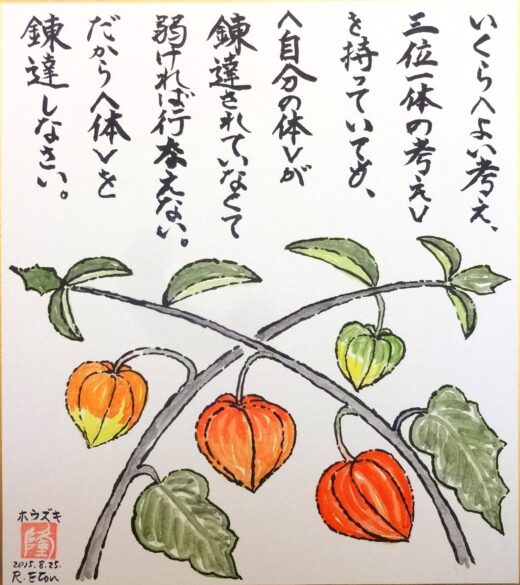 いくら〈よい考え、
三位一体の考え〉
を持っていても、
〈自分の体〉が
錬達されていなくて
弱ければ行なえない。
だから〈体〉を
錬達しなさい。
ホウズキ
隆
2015.8.25.
R.Eton